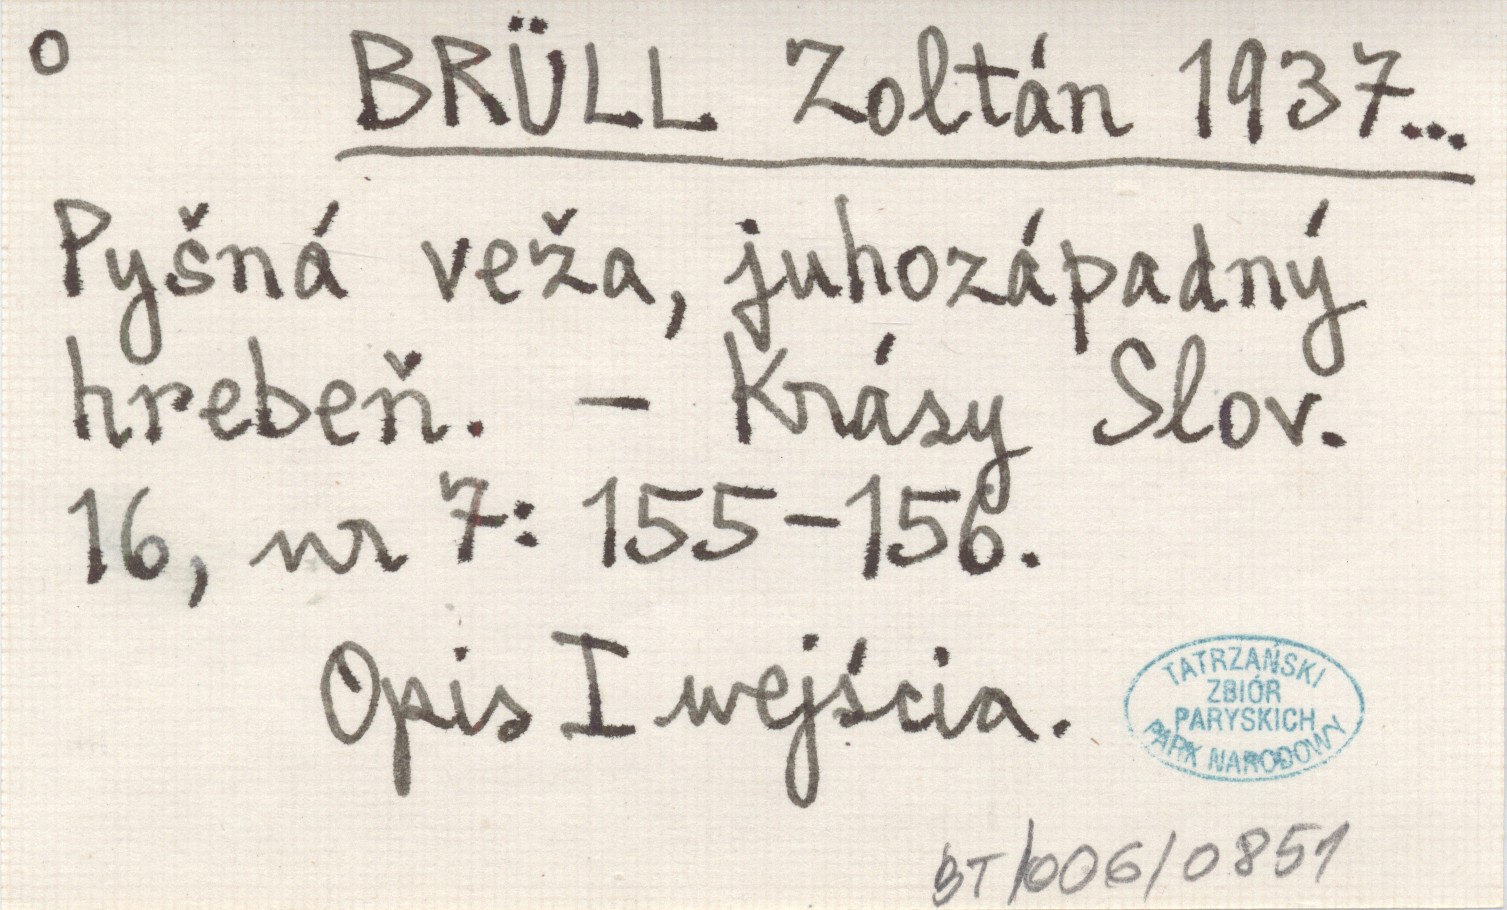 o BRÜLL Zoltán 1937...
Pyšná veža, juhozápadný
hrebeň. – Krásy Slov.
16, nr 7: 155–156.
Opis I wejścia.
TATRZAŃSKI
ZBIÓR
PARYSKICH
PARK NARODOWY
BT/006/0851